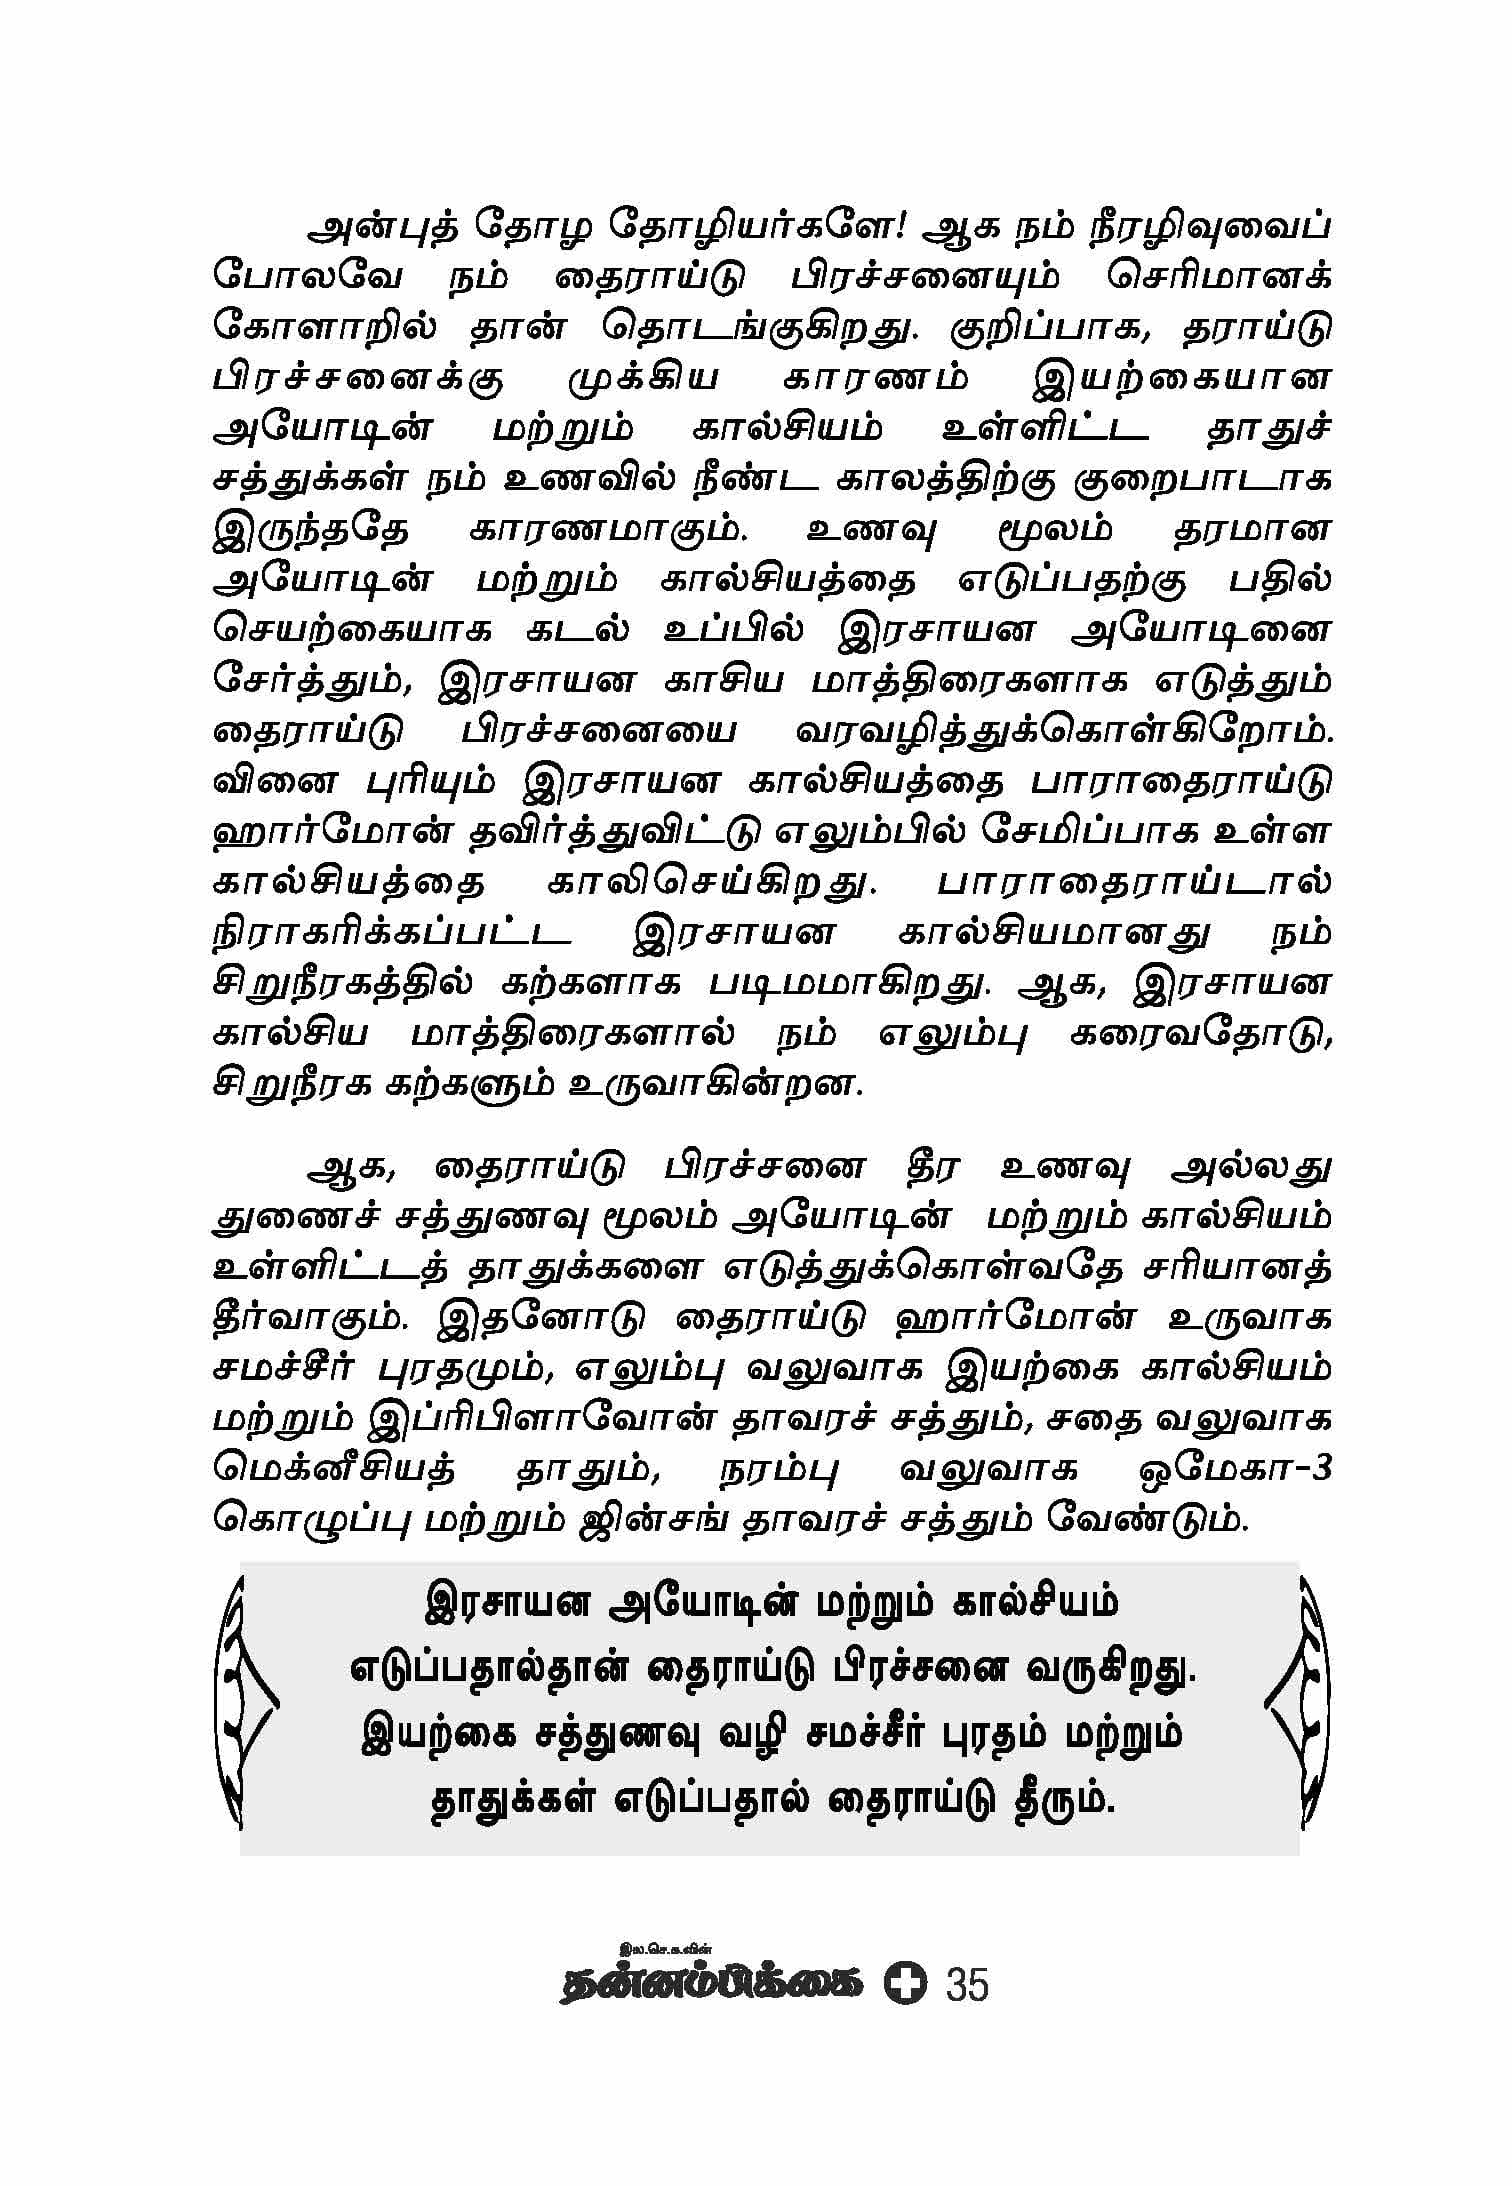 அன்புத் தோழ தோழியர்களே! ஆக நம் நீரழிவுவைப்
போலவே நம் தைராய்டு பிரச்சனையும் செரிமானக்
கோளாறில் தான் தொடங்குகிறது. குறிப்பாக, தராய்டு
பிரச்சனைக்கு முக்கிய காரணம் இயற்கையான
அயோடின் மற்றும் கால்சியம் உள்ளிட்ட தாதுச்
சத்துக்கள் நம் உணவில் நீண்ட காலத்திற்கு குறைபாடாக
இருந்ததே காரணமாகும். உணவு மூலம் தரமான
அயோடின் மற்றும் கால்சியத்தை எடுப்பதற்கு பதில்
செயற்கையாக கடல் உப்பில் இரசாயன அயோடினை
சேர்த்தும், இரசாயன காசிய மாத்திரைகளாக எடுத்தும்
தைராய்டு பிரச்சனையை வரவழித்துக்கொள்கிறோம்.
வினை புரியும் இரசாயன கால்சியத்தை பாராதைராய்டு
ஹார்மோன் தவிர்த்துவிட்டு எலும்பில் சேமிப்பாக உள்ள
கால்சியத்தை காலிசெய்கிறது. பாராதைராய்டால்
நிராகரிக்கப்பட்ட இரசாயன கால்சியமானது நம்
சிறுநீரகத்தில் கற்களாக படிமமாகிறது. ஆக, இரசாயன
கால்சிய மாத்திரைகளால் நம் எலும்பு கரைவதோடு,
சிறுநீரக கற்களும் உருவாகின்றன.
ஆக, தைராய்டு பிரச்சனை தீர உணவு அல்லது
துணைச் சத்துணவு மூலம் அயோடின் மற்றும் கால்சியம்
உள்ளிட்டத் தாதுக்களை எடுத்துக்கொள்வதே சரியானத்
தீர்வாகும். இதனோடு தைராய்டு ஹார்மோன் உருவாக
சமச்சீர் புரதமும், எலும்பு வலுவாக இயற்கை கால்சியம்
மற்றும் இப்ரிபிளாவோன் தாவரச் சத்தும், சதை வலுவாக
மெக்னீசியத் தாதும், நரம்பு வலுவாக ஒமேகா-3
கொழுப்பு மற்றும் ஜின்சங் தாவரச் சத்தும் வேண்டும்.
இரசாயன அயோடின் மற்றும் கால்சியம்
எடுப்பதால்தான் தைராய்டு பிரச்சனை வருகிறது.
இயற்கை சத்துணவு வழி சமச்சீர் புரதம் மற்றும்
தாதுக்கள் எடுப்பதால் தைராய்டு தீரும்.
இல.செ.க.வின்
தன்னம்பிக்கை 35